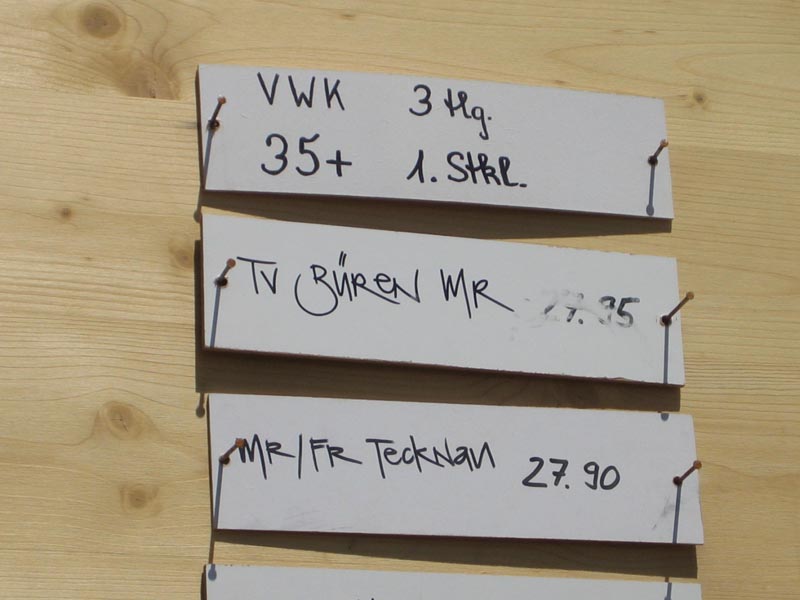 VWK 3 tlg.
35+ 1. Stkl.
TV BÜREN MR
MR/FR Tecknau 27.90